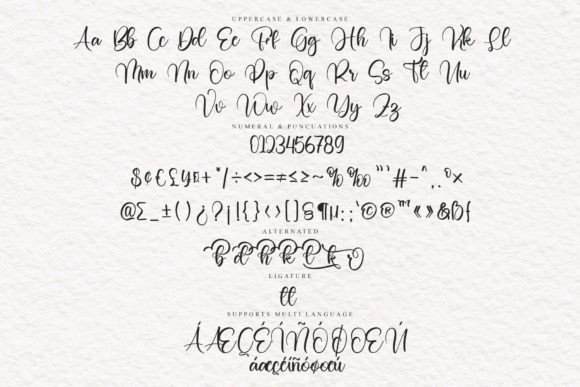 UPPERCASE & LOWERCASE
Aa Bb Cc Dd Ee Ff Gg Hh Ii Jj Kk Ll
Mm Nn Oo Pp Qq Rr Ss Tt Uu
Vv Ww Xx Yy Zz
NUMERAL & PUNCUATIONS
0123456789
$¢€£¥¤+*/÷<>=≠≤≥~%‰"'#-^,.º×
@∑_±()¿?¡|{}‹›[]§¶µ:;'©®™«»&ßƒ
ALTERNATED
b d h k l t o
LIGATURE
tt
SUPPORTS MULTI LANGUAGE
ÁÆÇÉÍÑÓØŒÚ
áæçéíñóøœú